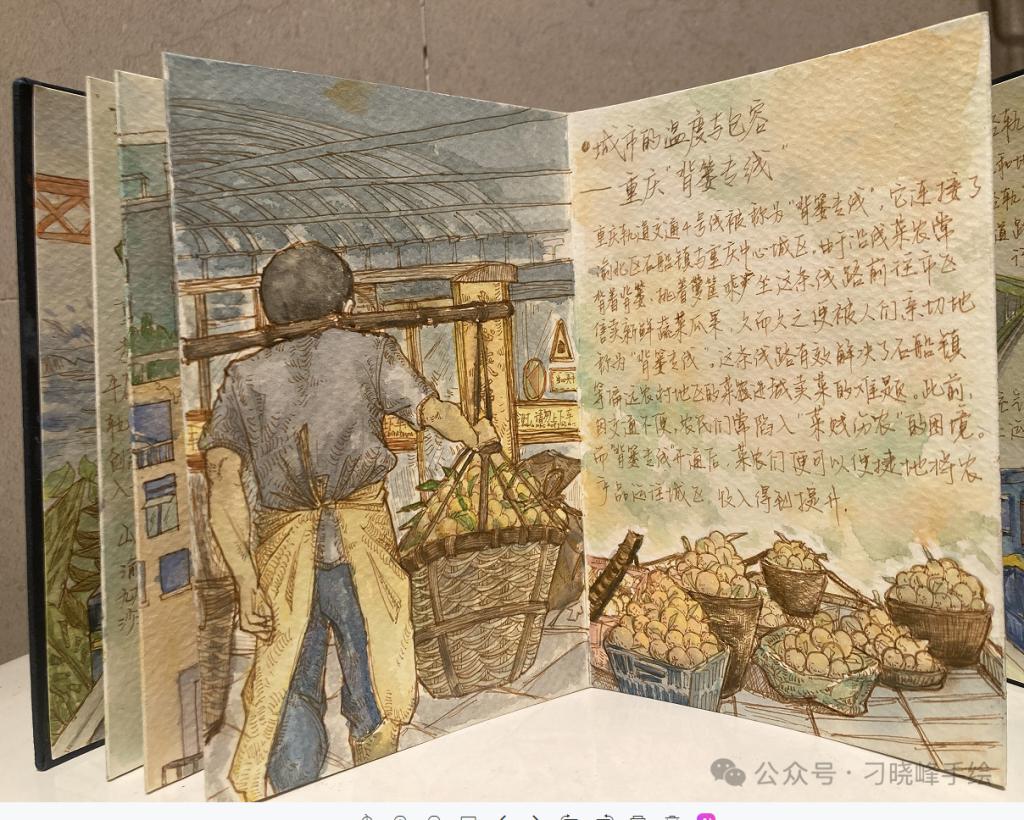 城市的温度与包容
——重庆"背篓专线"
重庆轨道交通4号线被称为"背篓专线",它连接了
渝北区石船镇与重庆中心城区,由于沿线菜农常
背着背篓、挑着箩筐乘坐这条线路前往市区
售卖新鲜蔬菜瓜果,久而久之便被人们亲切地
称为"背篓专线"。这条线路有效解决了石船镇
等偏远农村地区的菜农进城卖菜的难题。此前,
因交通不便,农民们常陷入"菜贱伤农"的困境。
而"背篓专线"开通后,菜农们便可以便捷地将农
产品运往城区,收入得到提升.
公众号·刁晓峰手绘